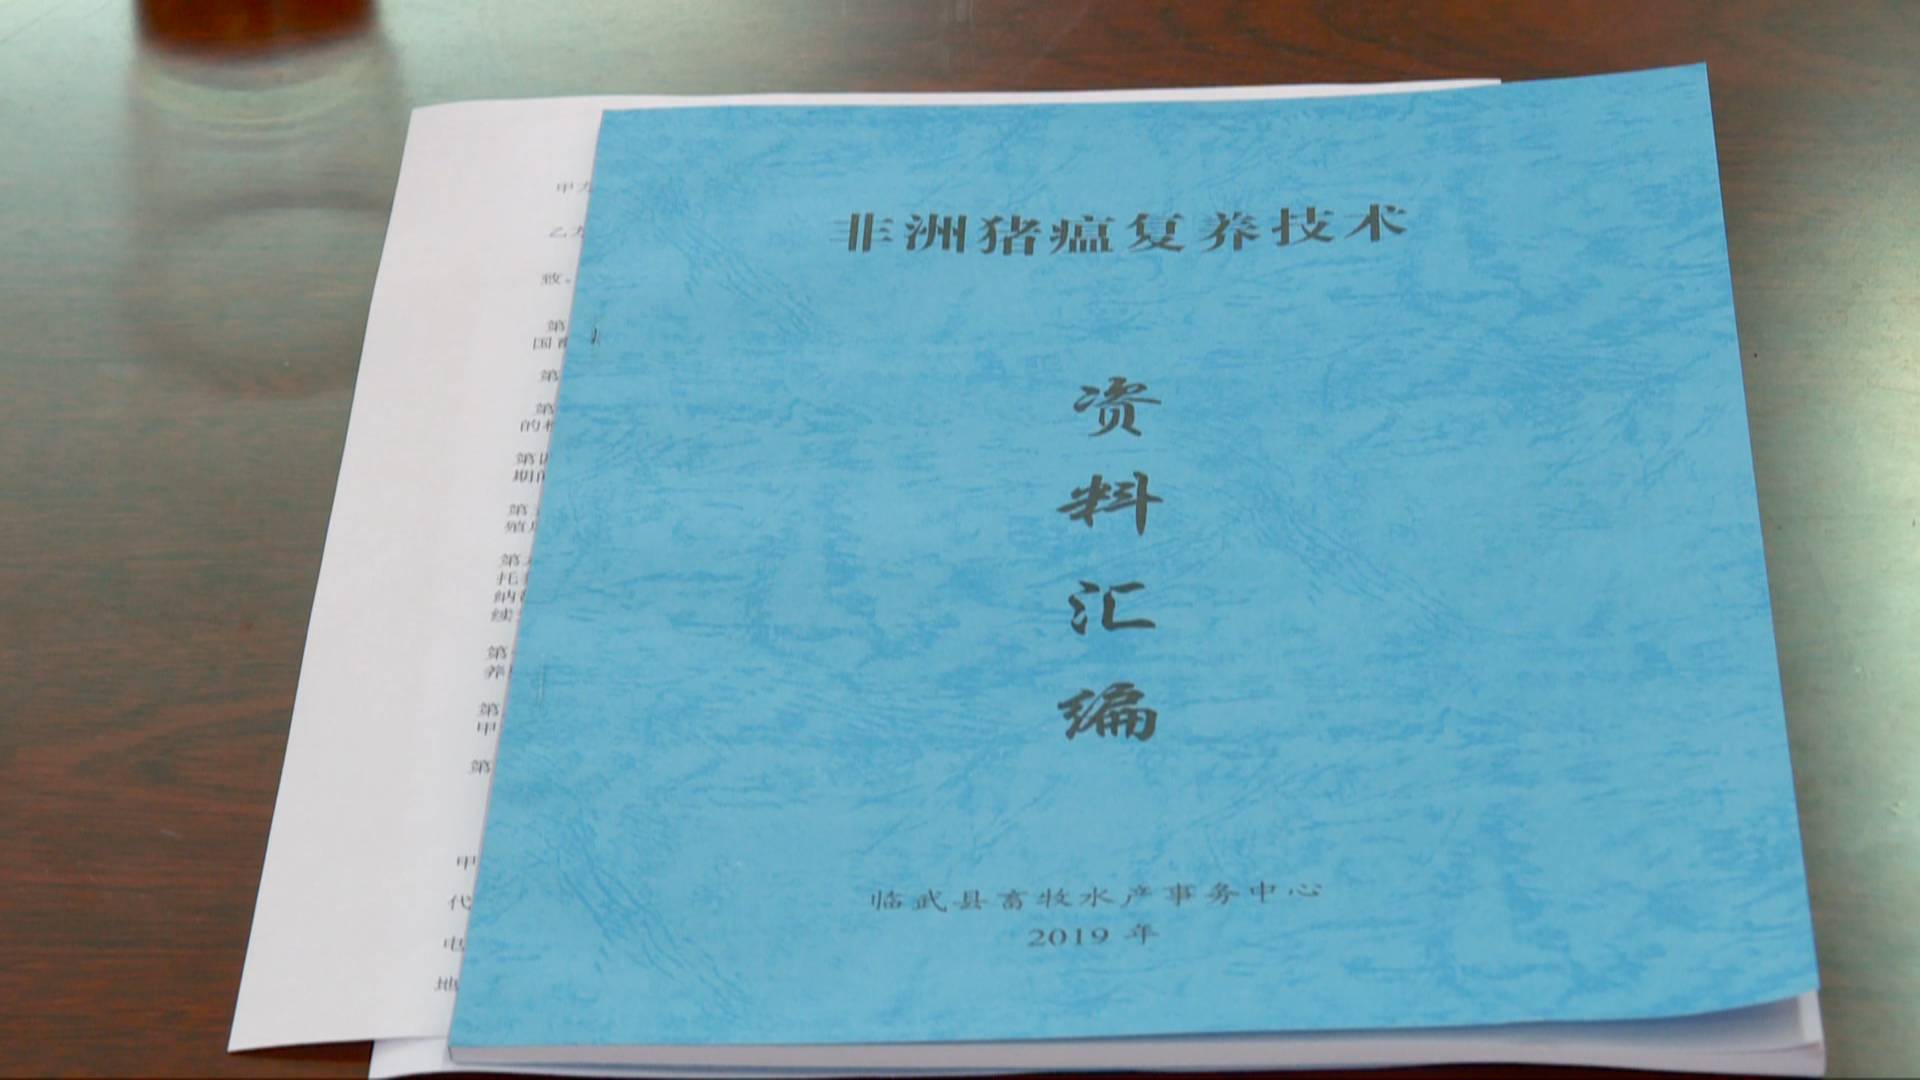 非洲猪瘟复养技术
资
料
汇
编
临武县畜牧水产事务中心
2019 年
甲方
乙方
致。
第
国
第
第
的
第四
期间
第五
殖
第六
托
纳
续
第
养
第
甲
第
甲
代
电
地